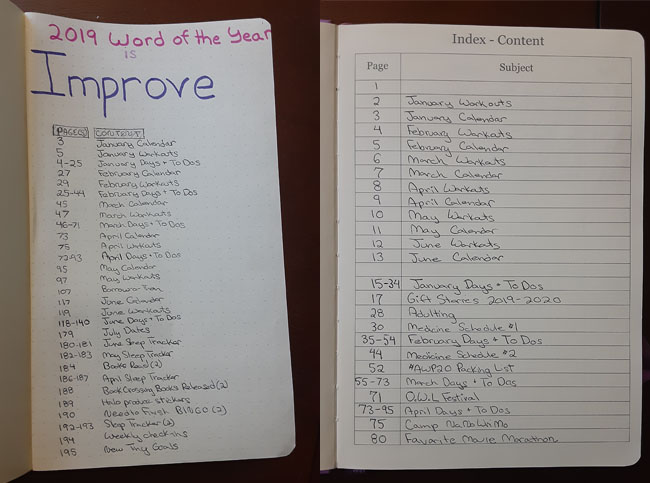 2019 Word of the Year
is
Improve
PAGE(S) CONTENT
3 January Calendar
5 January Workouts
4-25 January Days + To Dos
27 February Calendar
29 February Workouts
25-44 February Days + To Dos
45 March Calendar
47 March Workouts
46-71 March Days + To Dos
73 April Calendar
75 April Workouts
72-93 April Days + To Dos
95 May Calendar
97 May Workouts
107 Borrow-a-Thon
117 June Calendar
119 June Workouts
118-140 June Days + To Dos
179 July Dates
180-181 June Sleep Tracker
182-183 May Sleep Tracker
184 Books Read (2)
186-187 April Sleep Tracker
188 BookCrossing Books Released (2)
189 Halo product stickers
190 Need to Finish BINGO (2)
192-193 Sleep Tracker (2)
194 Weekly check-ins
195 New Tiny Goals
Index - Content
Page Subject
1
2 January Workouts
3 January Calendar
4 February Workouts
5 February Calendar
6 March Workouts
7 March Calendar
8 April Workouts
9 April Calendar
10 May Workouts
11 May Calendar
12 June Workouts
13 June Calendar
15-34 January Days + To Dos
17 Gift Stories 2019-2020
28 Adulting
30 Medicine Schedule #1
35-54 February Days + To Dos
44 Medicine Schedule #2
52 #AWP20 Packing List
55-73 March Days + To Dos
71 O.W.L Festival
73-95 April Days + To Dos
75 Camp NaNoWriMo
80 Favorite Movie Marathon